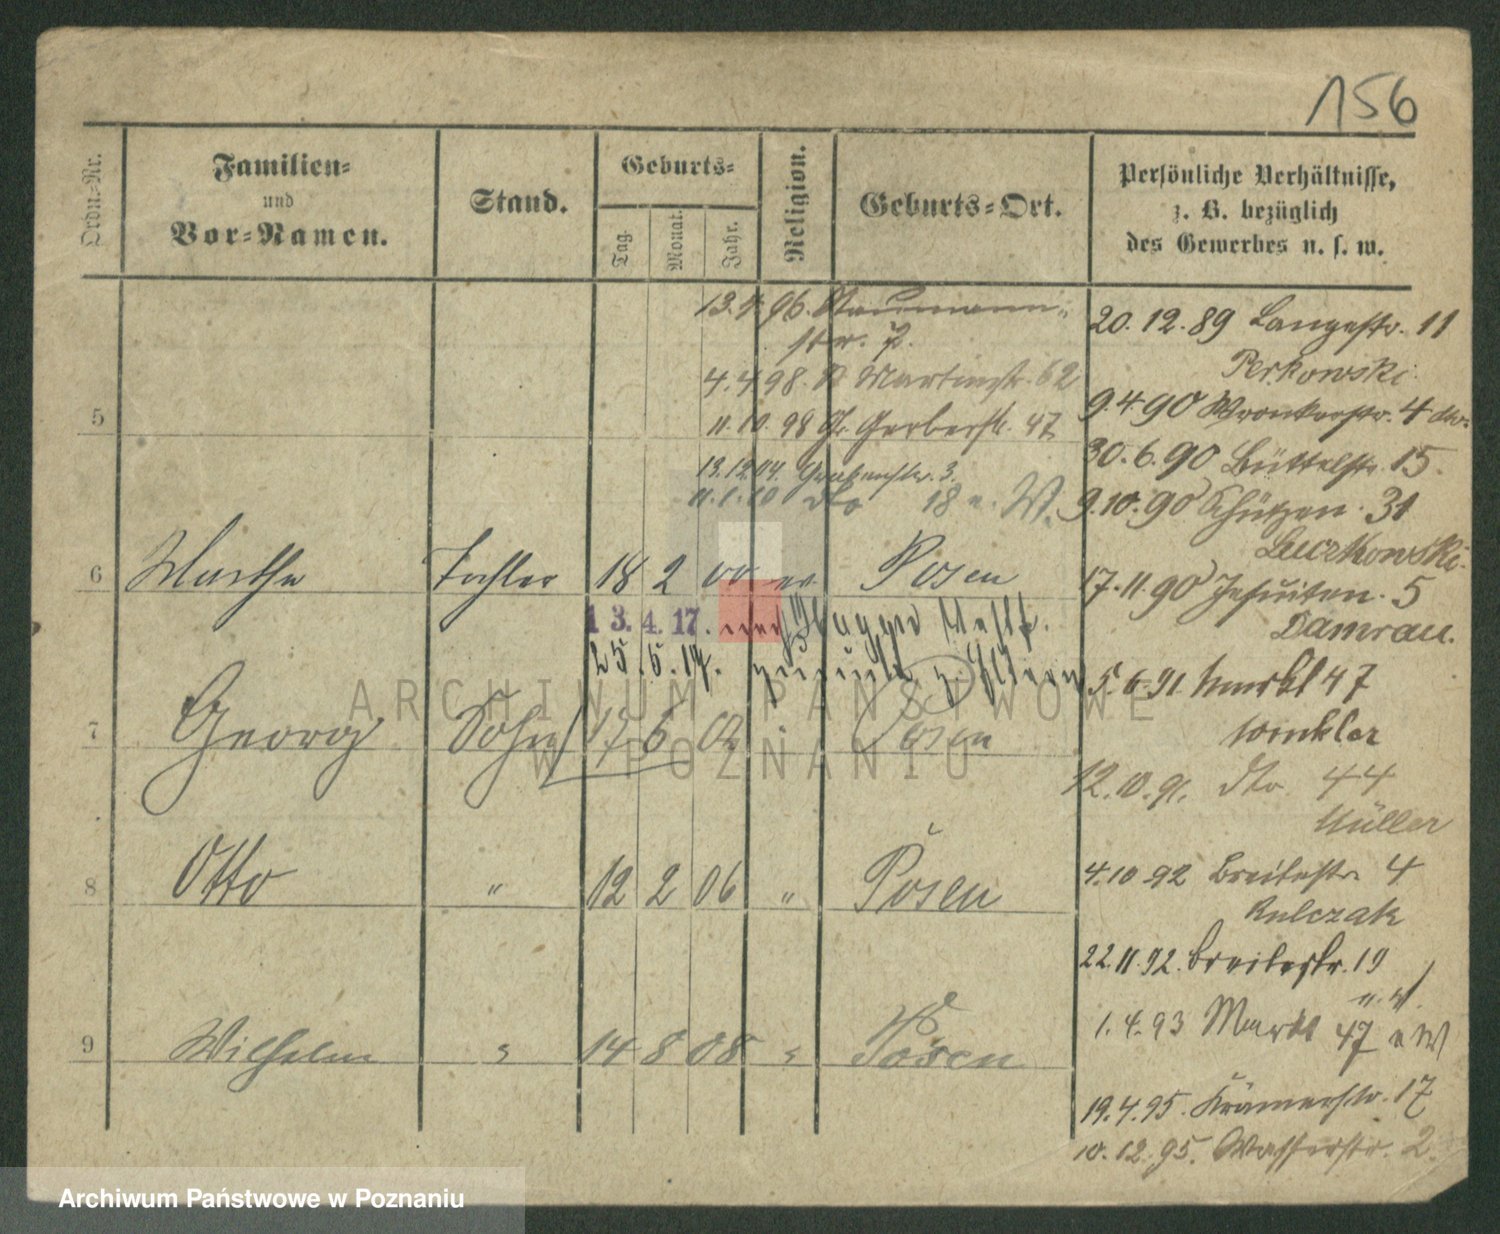 156
Ordn.-Nr.
Familien-
und
Vor-Namen.
Stand.
Geburts-
Tag.
Monat.
Jahr.
Religion.
Geburts-Ort.
Persönliche Verhältnisse,
z. B. bezüglich
des Gewerbes u. s. w.
13.4.96. Naumann-
str. 7.
4.4.98. St Martinstr. 62
11.10.98 Gr. Gerberstr. 47
13.12.04. Grabenstr. 3.
11.1.10 dto 18 n. W.
5
6 Martha Tochter 18 2 00 ev Posen
13.4.17. nach
25.5.17. zurück z. Eltern
7 Georg Sohn 17 6 02 Posen
8 Otto " 12 2 06 " Posen
9 Wilhelm " 14 8 08 " Posen
20.12.89 Langestr. 11
Perkowski
9.4.90 Wronkerstr. 4
30.6.90 Büttelstr. 15.
9.10.90 Schützen. 31
Luczkowski.
17.11.90 Jesuiten. 5
Damrau.
5.6.91 Markt 47
Winkler
12.10.91. dto. 44
Müller
4.10 92 Breitestr 4
Kulczak
22.11.92. Breitestr. 19
n. W.
1.4.93 Markt 47 n W
19.4.95. Krämerstr. 17
10.12.95. Wasserstr. 2.
ARCHIWUM PAŃSTWOWE
W POZNANIU
Archiwum Państwowe w Poznaniu